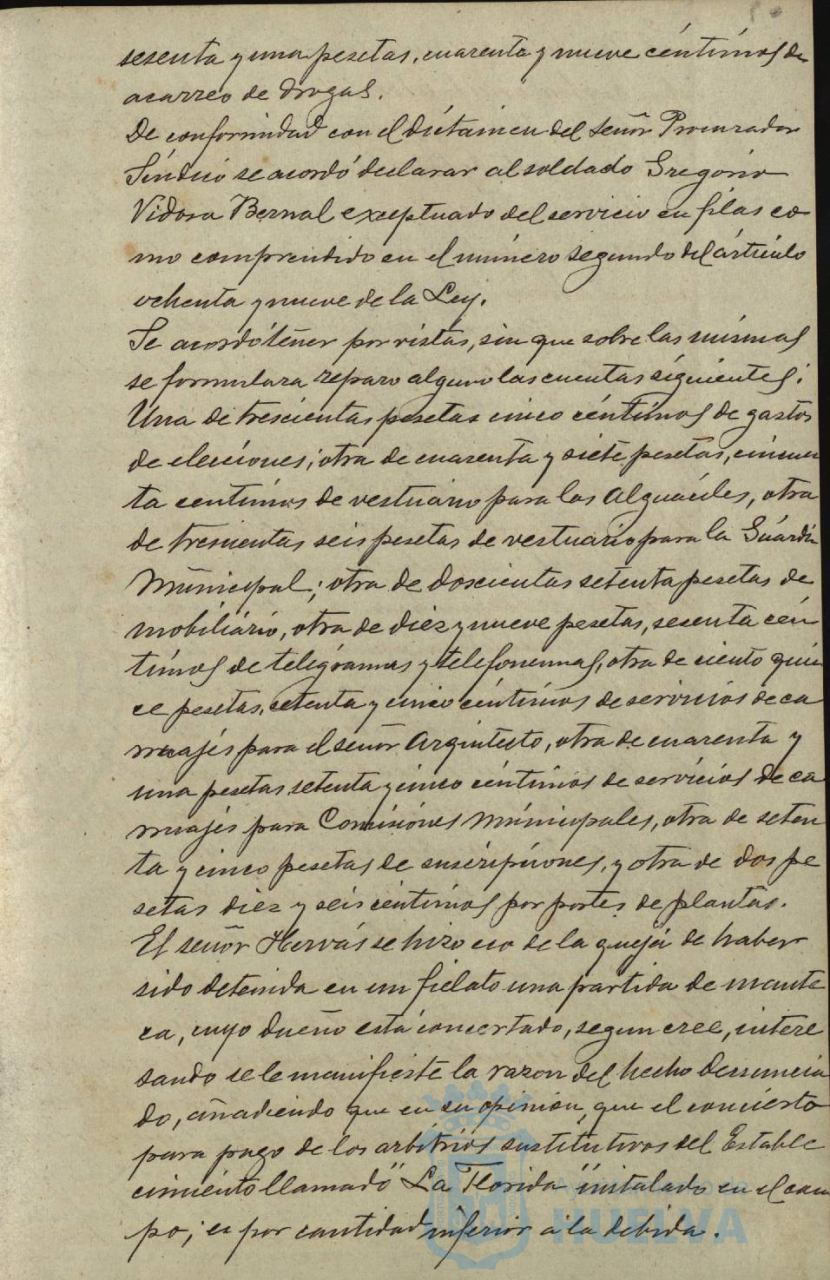 sesenta y una pesetas, cuarenta y nueve céntimos de
acarreo de drogas.
De conformidad con el dictamen del señor Procurador
Síndico se acordó declarar al soldado Gregorio
Vidosa Bernal exeptuado del servicio en filas co-
mo comprendido en el número segundo del artículo
ochenta y nueve de la Ley.
Se acordó tener por vistas, sin que sobre las mismas
se formulara reparo alguno las cuentas siguientes:
Una de trescientas pesetas cinco céntimos de gastos
de elecciones; otra de cuarenta y siete pesetas, cincuen
ta centimos de vestuario para los Alguaciles, otra
de trescientas seis pesetas de vestuario para la Guardia
Municipal; otra de doscientas setenta pesetas de
mobiliario, otra de diez y nueve pesetas, sesenta cén
timos de telegramas y telefonemas, otra de ciento quin
ce pesetas, setenta y cinco céntimos de servicios de ca
rruajes para el señor Arquitecto, otra de cuarenta y
una pesetas setenta y cinco céntimos de servicios de ca
rruajes para Comisiones Municipales, otra de seten
ta y cinco pesetas de suscripciones, y otra de dos pe
setas diez y seis céntimos por portes de plantas.
El señor Hervás se hizo eco de la queja de haber
sido detenida en un fielato una partida de mante
ca, cuyo dueño está concertado, segun cree, intere
sando se le manifieste la razon del hecho denuncia
do, añadiendo que en su opinion, que el concierto
para pago de los arbitrios sustitutivos del Estable
cimiento llamado "La Florida" instalado en el cam
po; es por cantidad inferior a la debida.
HUELVA